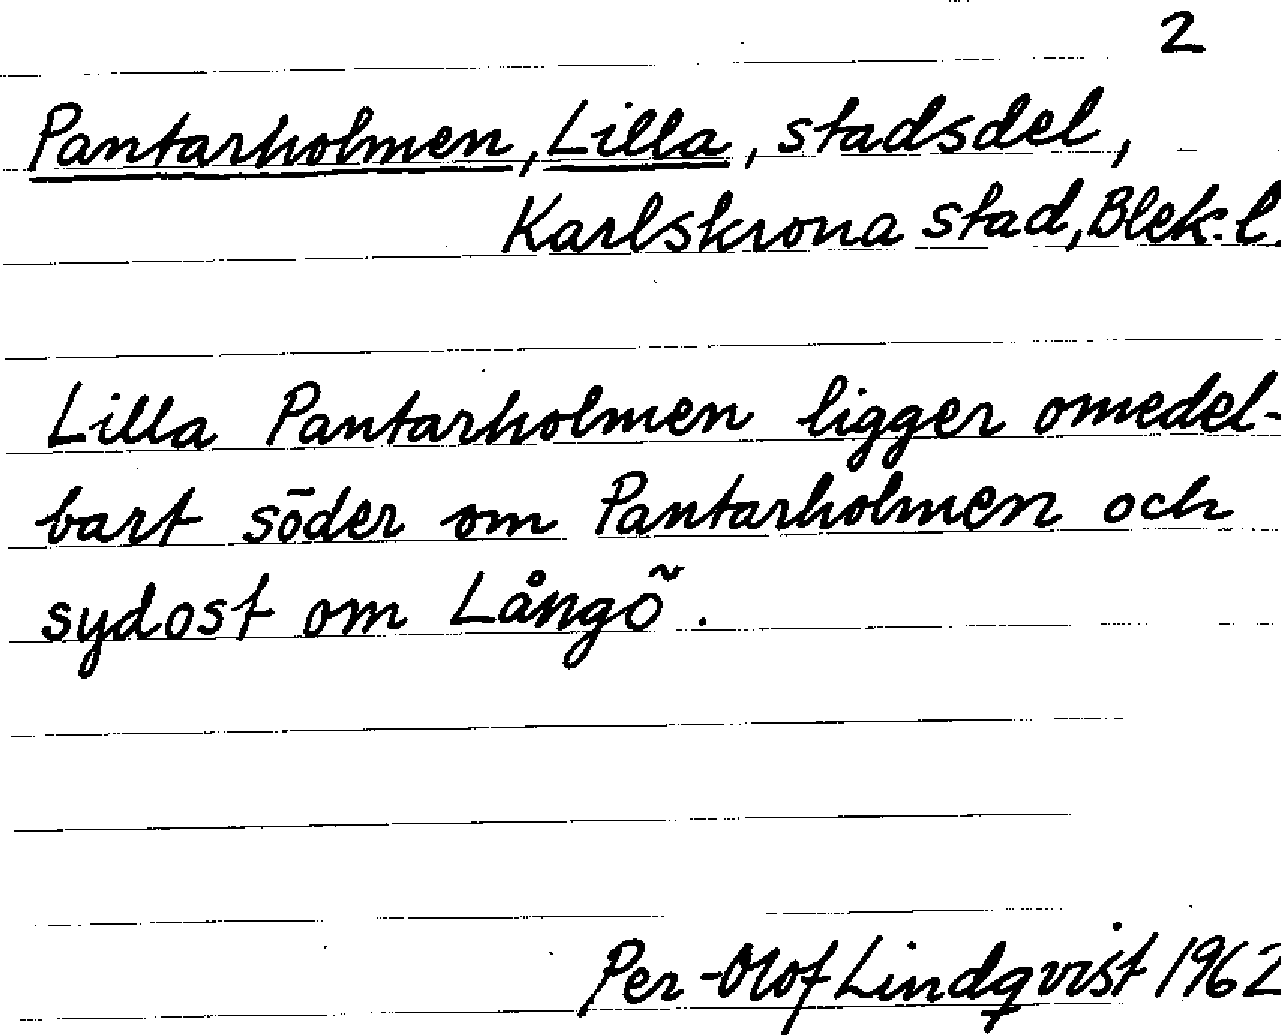 2
Pantarholmen, Lilla, stadsdel,
Karlskrona stad, Blek. l.
Lilla Pantarholmen ligger omedel-
bart söder om Pantarholmen och
sydost om Långö.
Per-Olof Lindqvist 1962